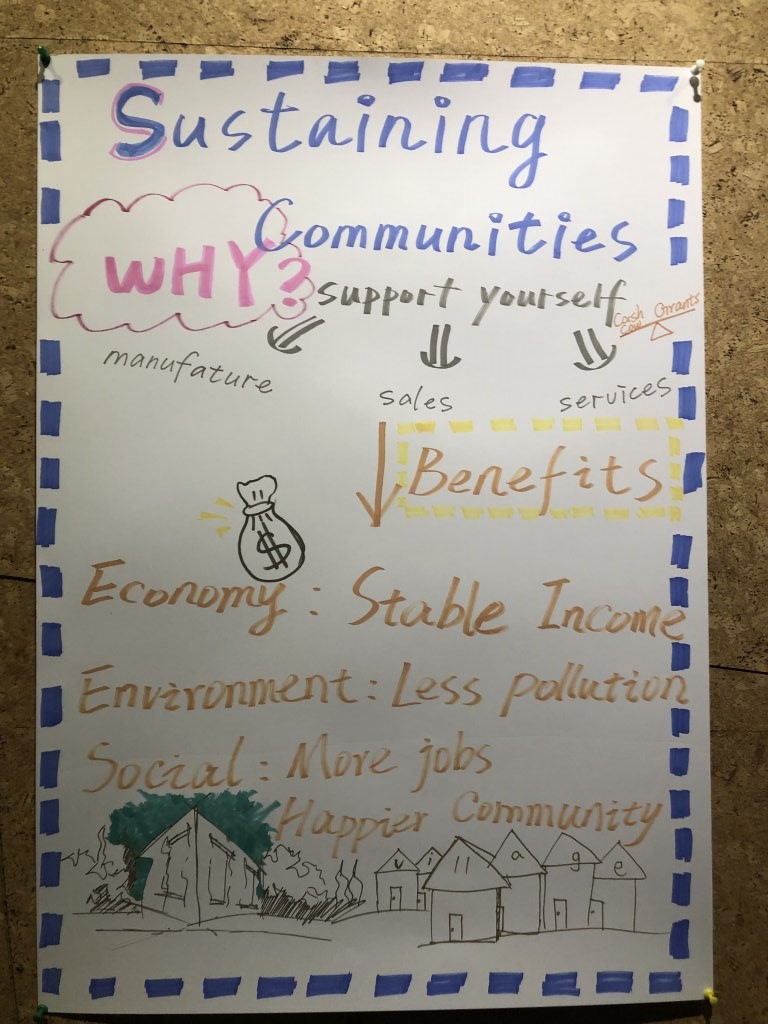 Sustaining
Communities
WHY?
support yourself
Cash Grants
Cow
manufature
sales
services
Benefits
$
Economy : Stable Income
Environment : Less pollution
Social : More jobs
Happier Community
village